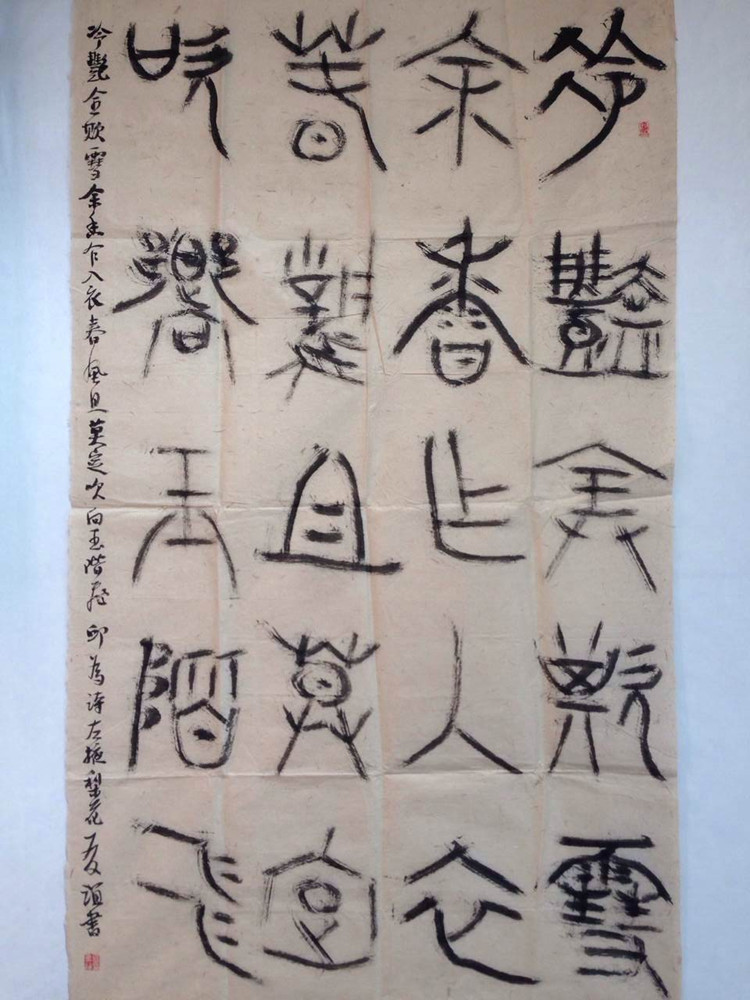 冷豔全欺雪
余香乍入衣
春風且莫定
吹嚮玉階飛
冷豔全欺雪余香乍入衣春風且莫定吹向玉階飛 邱為诗左掖梨花 書